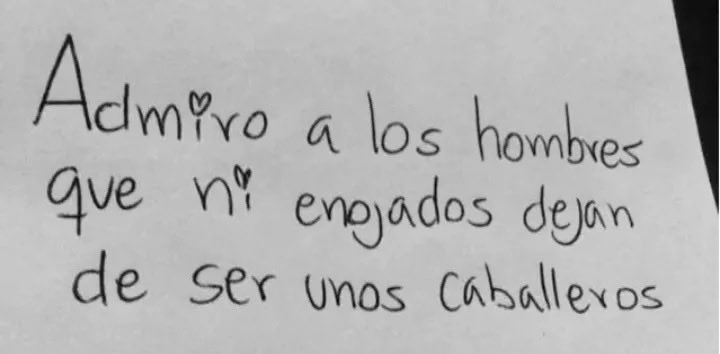 Admiro a los hombres
que ni enojados dejan
de ser unos caballeros